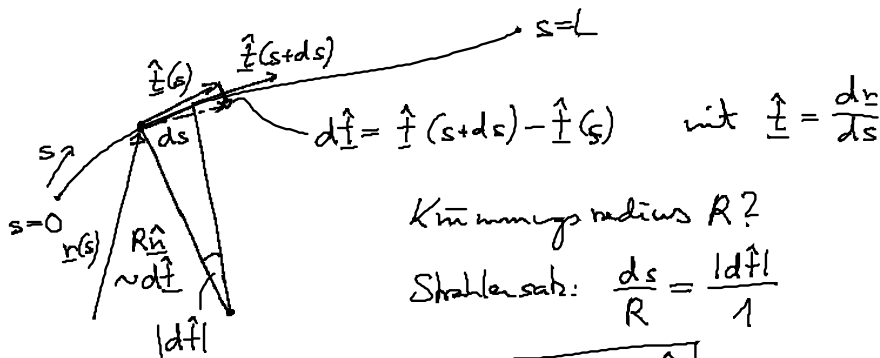 s=L
t̂(s) t̂(s+ds)
s ds dt̂ = t̂(s+ds) − t̂(s) mit t̂ = dr/ds
s=0
r(s) Rn̂ Krümmungsradius R?
~dt̂ Strahlensatz: ds/R = |dt̂|/1
|dt̂|